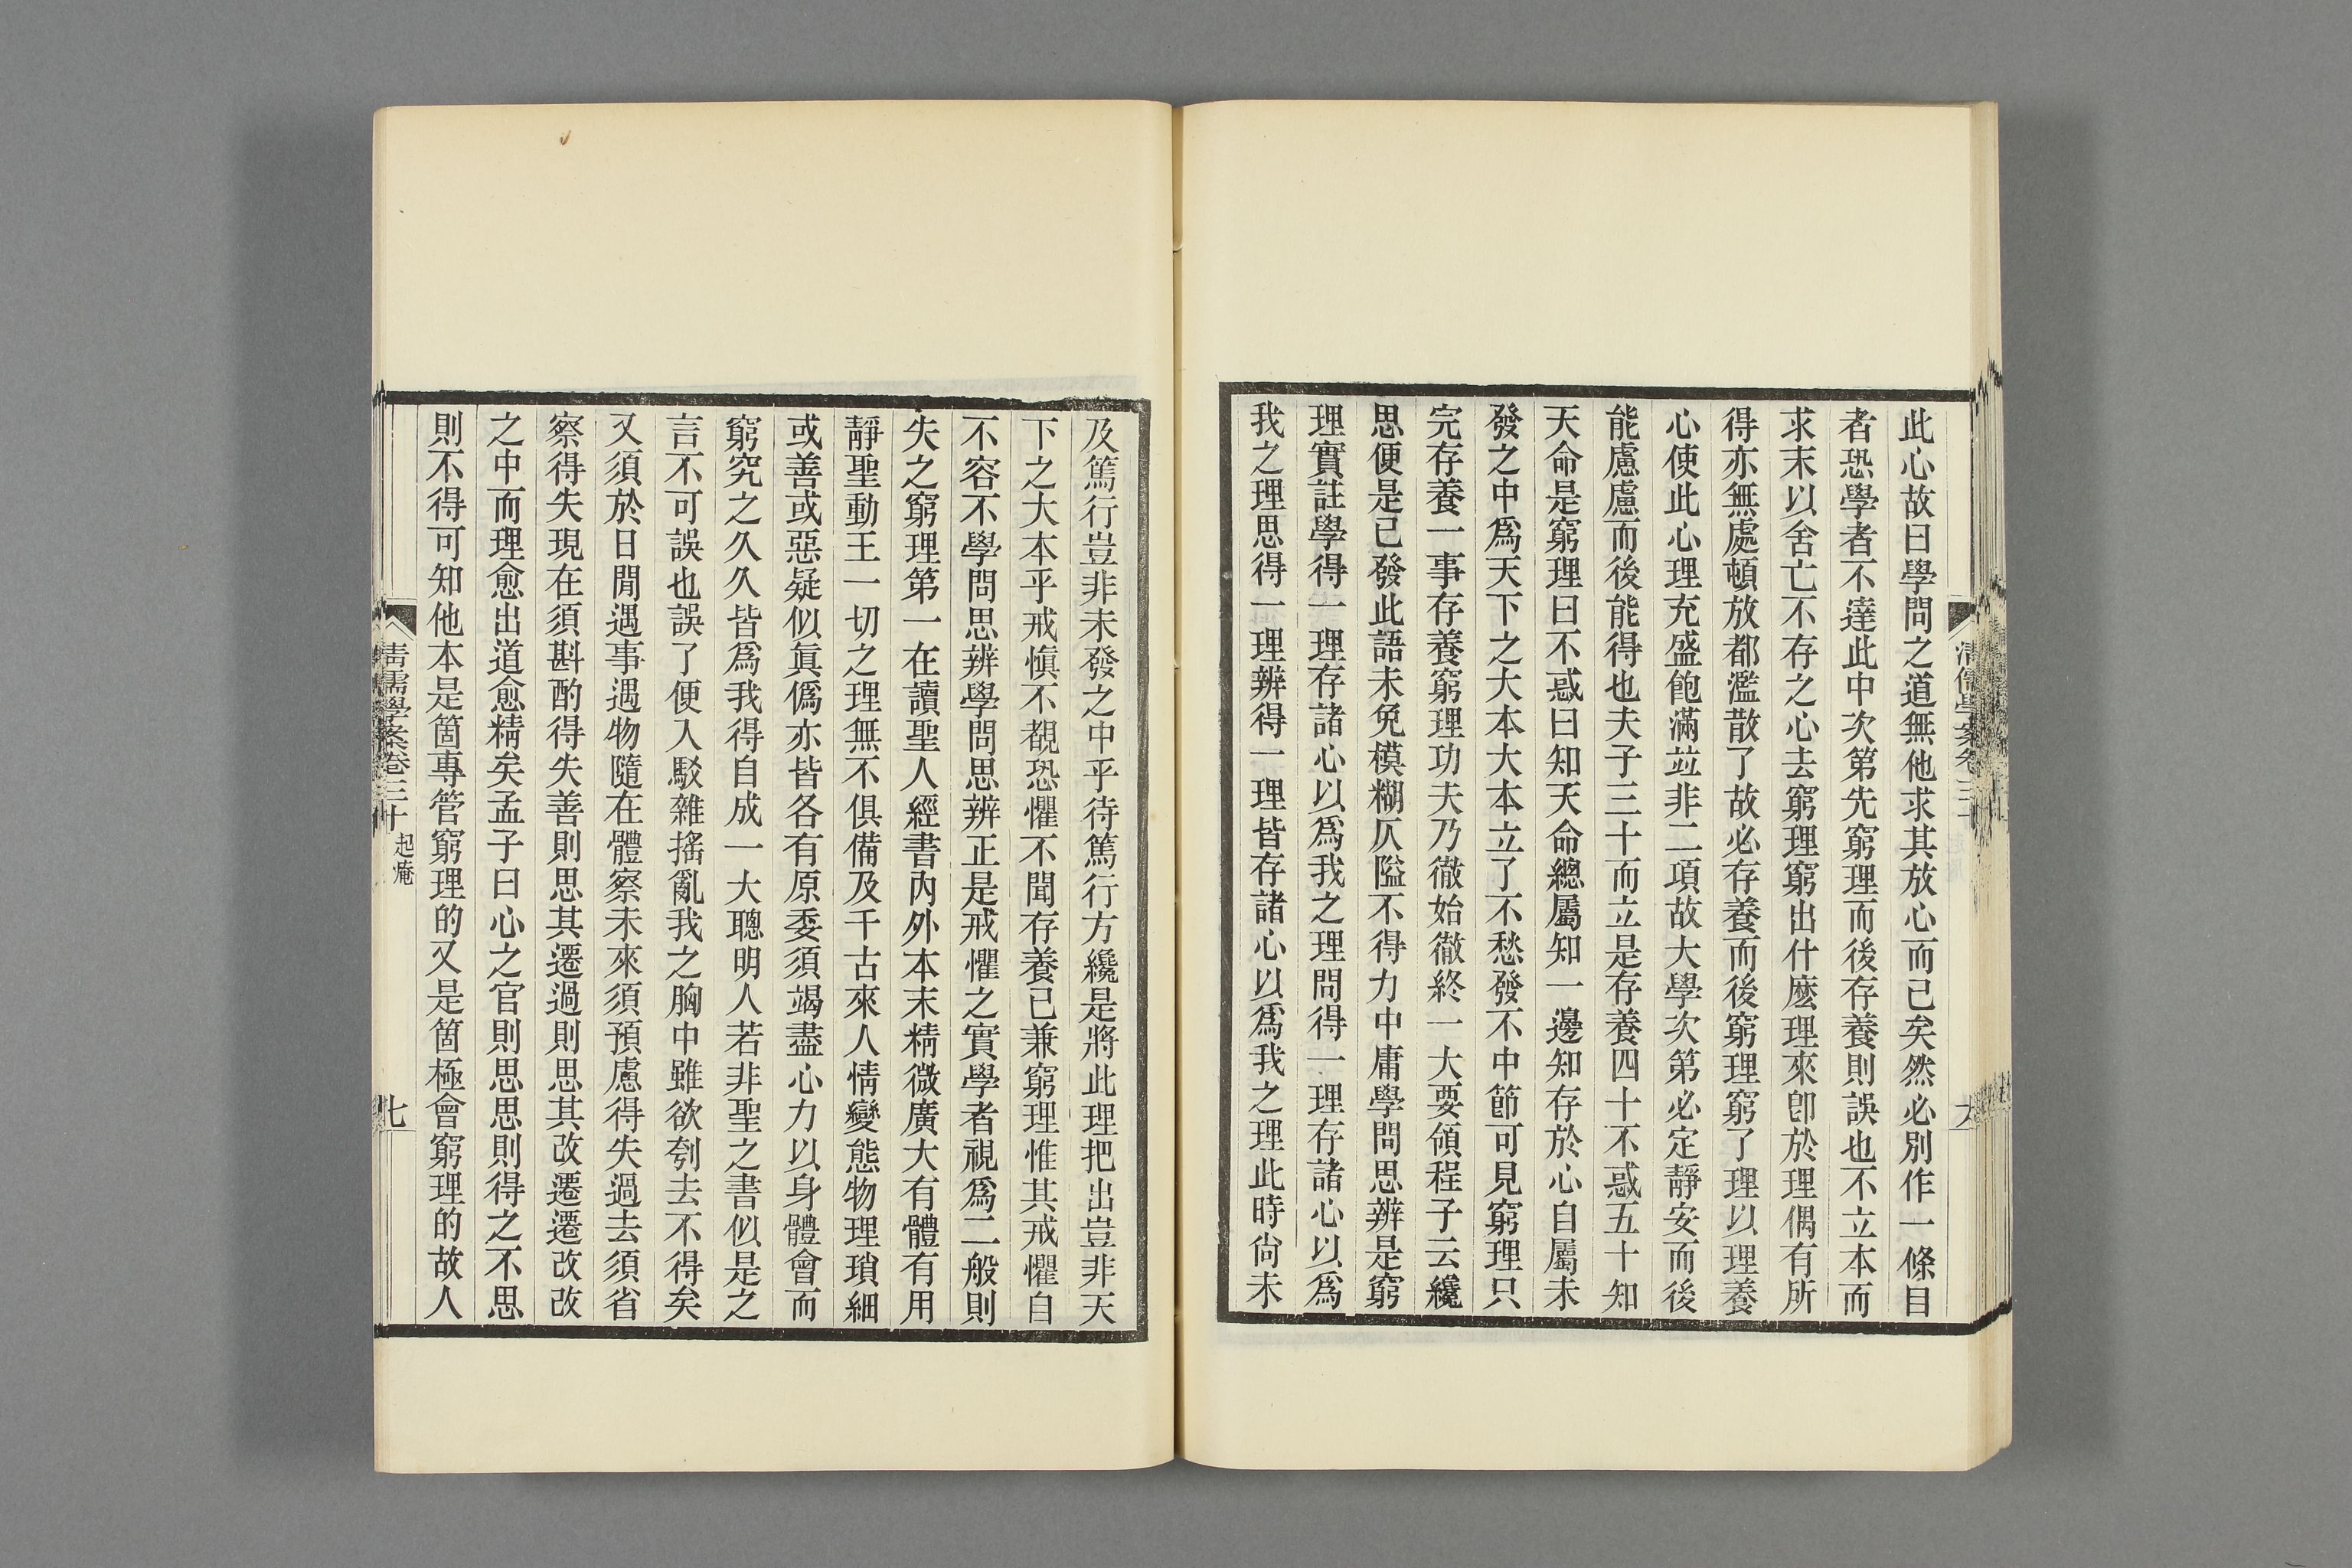 清儒學案卷三十
六
此心故曰學問之道無他求其放心而已矣然必別作一條目
者恐學者不達此中次第先窮理而後存養則誤也不立本而
求末以舍亡不存之心去窮理窮出什麼理來卽於理偶有所
得亦無處頓放都濫散了故必存養而後窮理窮了理以理養
心使此心理充盛飽滿竝非二項故大學次第必定靜安而後
能慮慮而後能得也夫子三十而立是存養四十不惑五十知
天命是窮理曰不惑曰知天命總屬知一邊知存於心自屬未
發之中爲天下之大本大本立了不愁發不中節可見窮理只
完存養一事存養窮理功夫乃徹始徹終一大要領程子云纔
思便是已發此語未免模糊仄隘不得力中庸學問思辨是窮
理實註學得一理存諸心以爲我之理問得一理存諸心以爲
我之理思得一理辨得一理皆存諸心以爲我之理此時尙未
及篤行豈非未發之中乎待篤行方纔是將此理把出豈非天
下之大本乎戒愼不覩恐懼不聞存養已兼窮理惟其戒懼自
不容不學問思辨學問思辨正是戒懼之實學者視爲二般則
失之窮理第一在讀聖人經書內外本末精微廣大有體有用
靜聖動王一切之理無不俱備及千古來人情變態物理瑣細
或善或惡疑似眞僞亦皆各有原委須竭盡心力以身體會而
窮究之久久皆爲我得自成一大聰明人若非聖之書似是之
言不可誤也誤了便入駁雜搖亂我之胸中雖欲刳去不得矣
又須於日閒遇事遇物隨在體察未來須預慮得失過去須省
察得失現在須斟酌得失善則思其遷過則思其改遷遷改改
之中而理愈出道愈精矣孟子曰心之官則思思則得之不思
則不得可知他本是箇專管窮理的又是箇極會窮理的故人
清儒學案卷三十 起菴
七